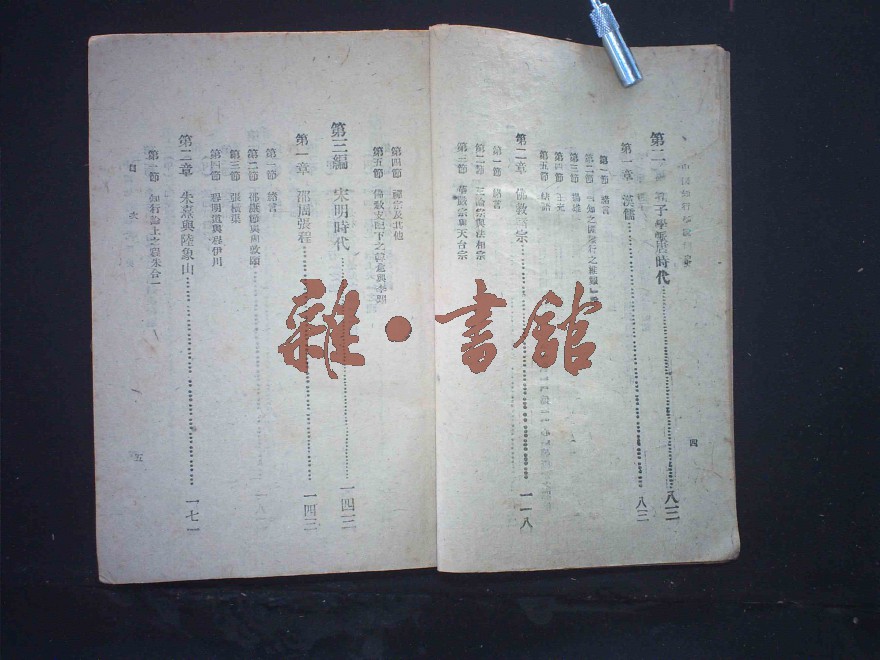 四
時代……八三
第一章 漢儒……八三
第一節 緒言
第三節 揚雄
第四節 王充
第五節 結語
第二章 佛教宗……一一八
第一節 緒言
第二節 三論宗與法相宗
第三節 華嚴宗與天台宗
第四節 禪宗及其他
第五節 佛教支配下之韓愈與李翱
第三編 宋明時代……一四三
第一章 邵周張程……一四三
第一節 緒言
第二節 邵康節與周敦頤
第三節 張橫渠
第四節 程明道與程伊川
第二章 朱熹與陸象山……一七一
第一節 知行論上之程朱合一
目次
五
雜·書館